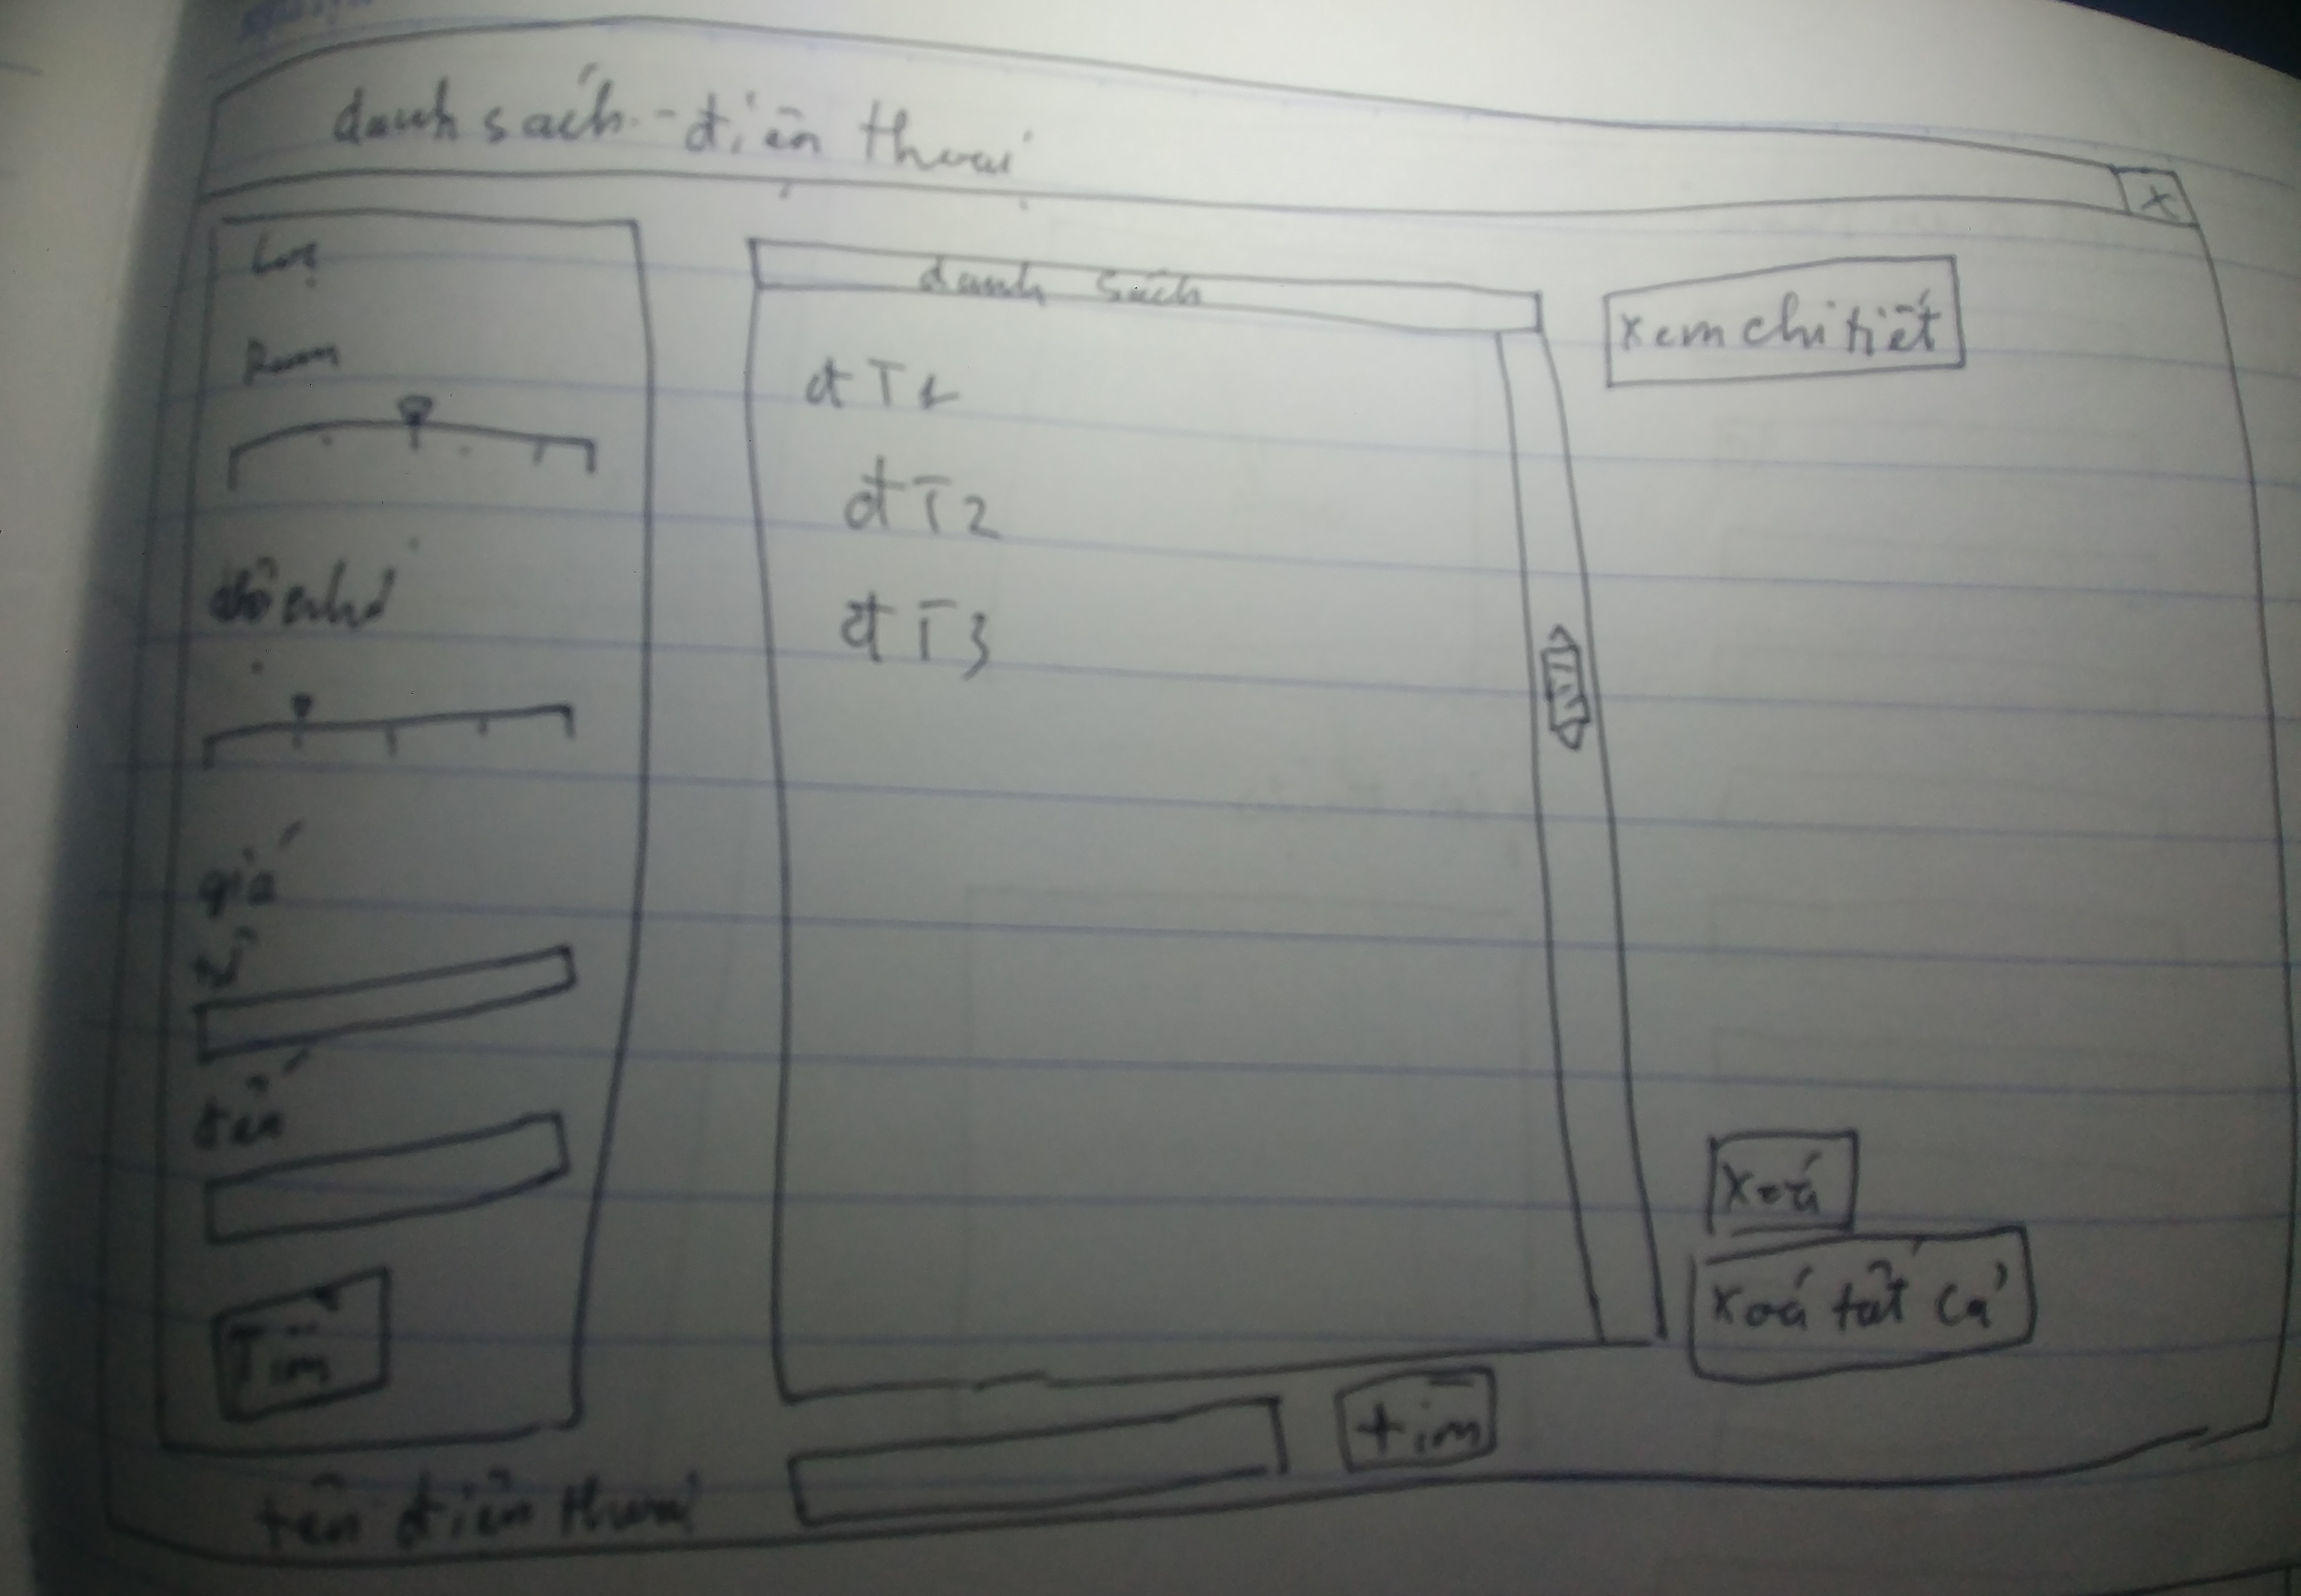 danh sách - điện thoại
Lọc
Ram
bộ nhớ
giá
từ
đến
Tìm
danh sách
đT1
đT2
đT3
xem chi tiết
xoá
xoá tất cả
tên điện thoại
tìm